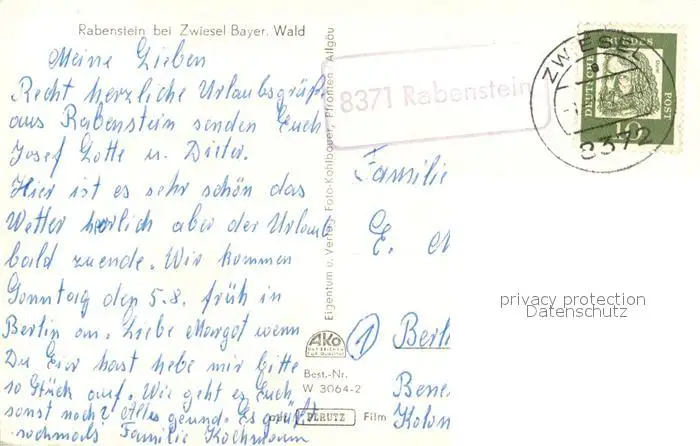 Rabenstein bei Zwiesel Bayer. Wald
Meine Lieben
Recht herzliche Urlaubsgrüße
aus Rabenstein senden Euch
Josef Lotte u. Dieter.
Hier ist es sehr schön das
Wetter herlich aber der Urlaub
bald zuende. Wir kommen
Sonntag den 5.8. früh in
Berlin an. Liebe Margot wenn
Du Eier hast hebe mir bitte
10 Stück auf. Wie geht es Euch
sonst noch? Alles gesund. Es grüßt
nochmals Familie Kochmann
Eigentum u. Verlag Foto-Kohlbauer, Pfronten Allgäu
8371 Rabenstein
ZWIESEL
8372
DEUTSCHE BUNDESPOST
10
Familie
E.
1 Berl
Bene
Kolon
AKO
Best.-Nr.
W 3064-2
PERUTZ Film
privacy protection
Datenschutz